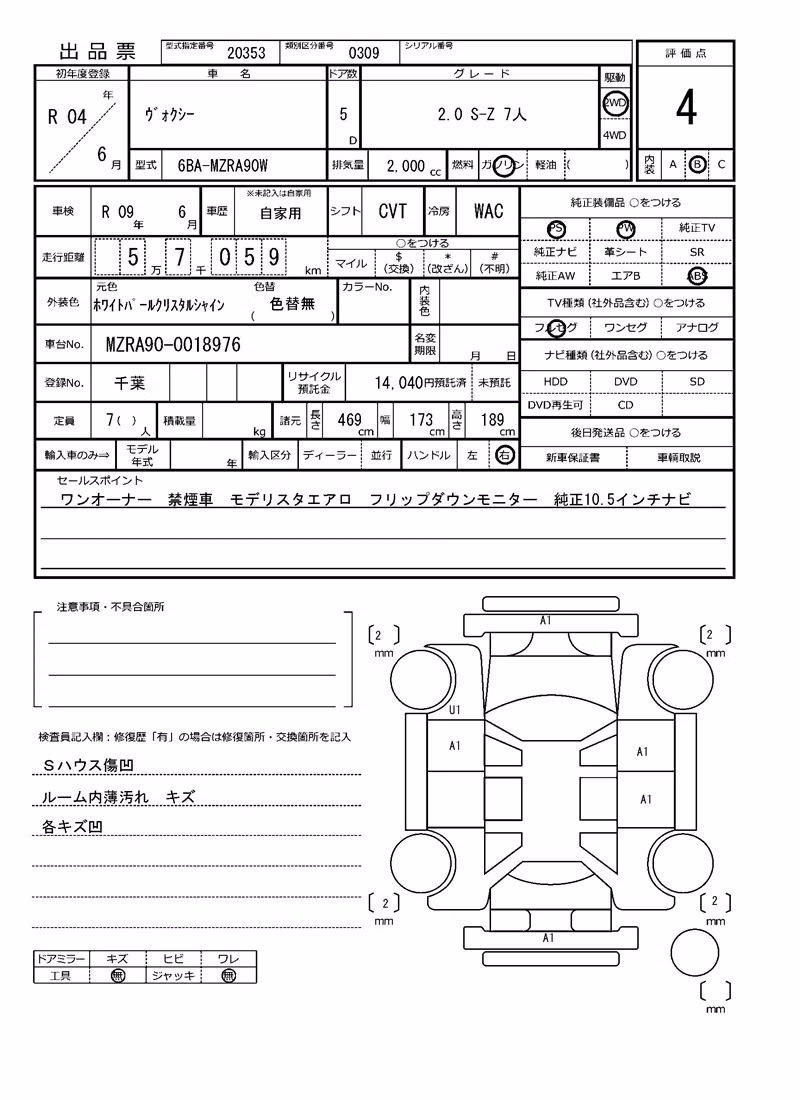 出品票
型式指定番号 20353 類別区分番号 0309 シリアル番号
評価点
4
内装 A B C
初年度登録 車名 ドア数 グレード 駆動
R 04 年 6 月
ヴォクシー
5 D
2.0 S-Z 7人
2WD
4WD
型式 6BA-MZRA90W 排気量 2,000 cc 燃料 ガソリン 軽油 ( )
車検 R 09 年 6 月 車歴 ※未記入は自家用 自家用 シフト CVT 冷房 WAC
走行距離 5 万 7 千 0 5 9 km
○をつける
マイル $ (交換) * (改ざん) # (不明)
外装色 元色 ホワイトパールクリスタルシャイン 色替 色替無 ( ) カラーNo. 内装色
車台No. MZRA90-0018976 名変期限 月 日
登録No. 千葉 リサイクル預託金 14,040円預託済 未預託
定員 7( ) 人 積載量 kg 諸元 長さ 469 cm 幅 173 cm 高さ 189 cm
輸入車のみ⇒ モデル年式 年 輸入区分 ディーラー 並行 ハンドル 左 右
純正装備品 ○をつける
PS PW 純正TV
純正ナビ 革シート SR
純正AW エアB ABS
TV種類(社外品含む)○をつける
フルセグ ワンセグ アナログ
ナビ種類(社外品含む)○をつける
HDD DVD SD
DVD再生可 CD
後日発送品 ○をつける
新車保証書 車輌取説
セールスポイント
ワンオーナー 禁煙車 モデリスタエアロ フリップダウンモニター 純正10.5インチナビ
注意事項・不具合箇所
検査員記入欄：修復歴「有」の場合は修復箇所・交換箇所を記入
Sハウス傷凹
ルーム内薄汚れ キズ
各キズ凹
ドアミラー キズ ヒビ ワレ
工具 無 ジャッキ 無
A1
[2] mm
[2] mm
U1
A1
A1
A1
[2] mm
[2] mm
A1
[ ] mm